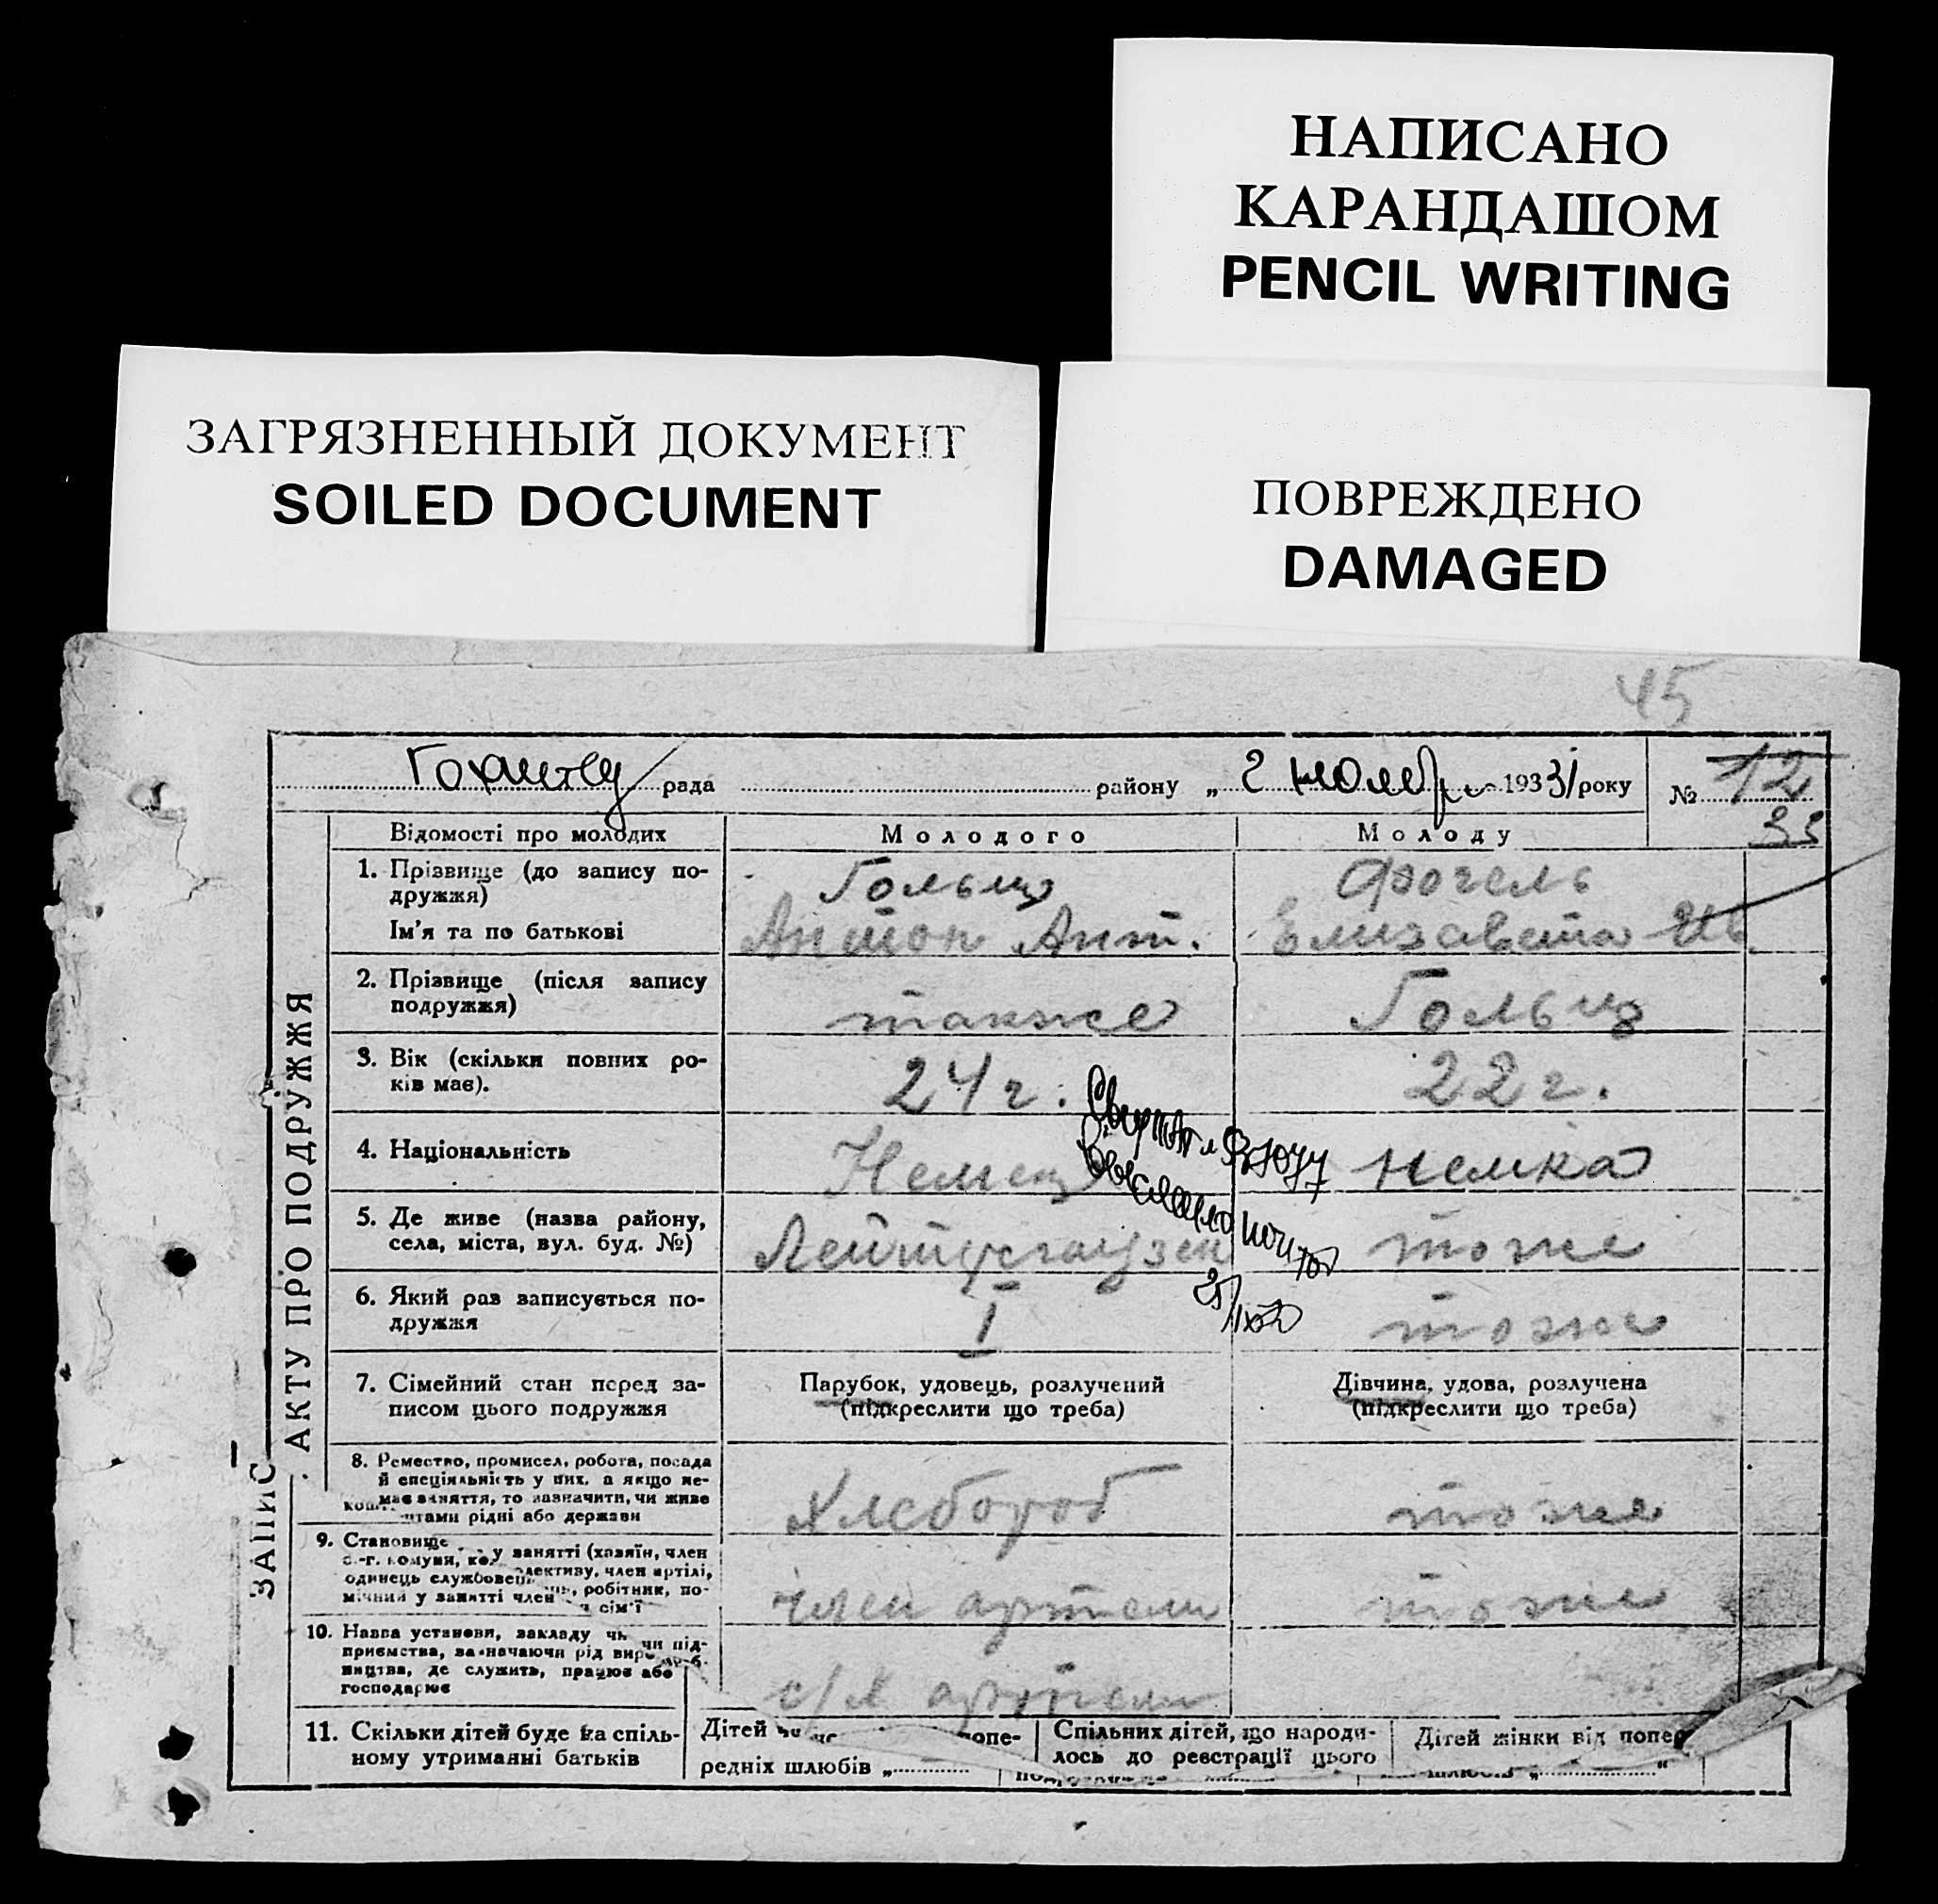 НАПИСАНО
КАРАНДАШОМ
PENCIL WRITING
ЗАГРЯЗНЕННЫЙ ДОКУМЕНТ
SOILED DOCUMENT
ПОВРЕЖДЕНО
DAMAGED
45
рада району „ 2 ноября 1933 року № 12
33
ЗАПИС АКТУ ПРО ПОДРУЖЖЯ
Відомості про молодих Молодого Молоду
1. Прізвище (до запису по-
дружжя)
Гольц Фогель
Ім'я та по батькові Антон Ант. Елизавета Ив.
2. Прізвище (після запису
подружжя)
также Гольц
3. Вік (скільки повних ро-
ків має).
24 г. 22 г.
4. Національність Немец немка
5. Де живе (назва району,
села, міста, вул. буд. №)
тоже
6. Який раз записується по-
дружжя
I тоже
7. Сімейний стан перед за-
писом цього подружжя
Парубок, удовець, розлучений
(підкреслити що треба)
Дівчина, удова, розлучена
(підкреслити що треба)
8. Ремество, промисел, робота, посада
й спеціяльність у них, а якщо не-
має заняття, то зазначити, чи живе
рідні або держави
Хлебороб тоже
9. Становище у занятті (хазяїн, член
с.-г. комуни, член артілі,
одинець службовець, робітник, по-
мічний у занятті член сім'ї
член артели тоже
10. Назва установи, закладу чи під-
приємства, зазначаючи рід вироб-
ництва, де служить, працює або
господарює
с/х артели
11. Скільки дітей буде на спіль-
ному утриманні батьків
Дітей попе-
редніх шлюбів „
Спільних дітей, що народи-
лось до реєстрації цього
Дітей жінки від попер
шлюбів „ "